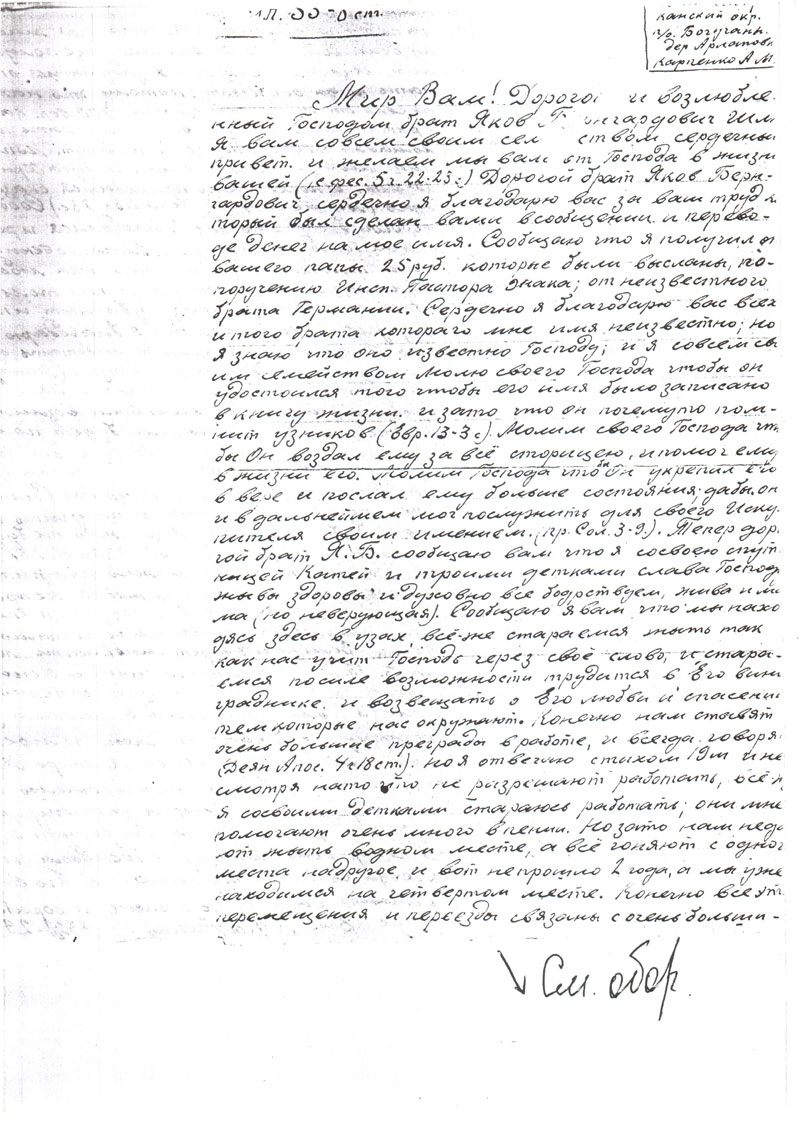 канский окр.
п/о. Богучаны.
дер Арпатовк
Карпенко А М.
Мир Вам! Дорогой и возлюбле-
нный Господом брат Яков
Я вам совсем своим сердечный
привет. и желаем мы вам от Господа в жизни
вашей (Ефес. 5 г. 22-23:) Дорогой брат Яков Берн-
гардович, сердечно я благодарю вас за ваш труд к
торый был сделан вами в сообщении и перево-
де денег на мое имя. Сообщаю что я получил от
вашего папы. 25 руб. которые были высланы, по-
поручению Инсп. Пастора Энака; от неизвестного
брата Германии. Сердечно я благодарю вас всех
и того брата котораго мне имя неизвестно; но
я знаю что оно известно Господу; и я совсем сь
им семейством молю своего Господа чтобы он
удостоился того чтобы его имя было записано
в книгу жизни. и зато что он почемуто пом-
нит узников (Евр. 13-3 с). Молим своего Господа чт
бы Он воздал ему за всё сторицею, и помог ему
в жизни его. Молим Господа что бы Он укрепил его
в вере и послал ему больше состояния, дабы он
и в дальнейшем мог послужить для своего Иску
пителя своим имением. (пр. Сол. 3-9.). Тепер дор
гой брат Я. Б. сообщаю вам что я сосвоею спут
ницей Катей и троими детками слава Господу
живы здоровы и духовно все бодрствуем, жива и ма
ма (но неверующая). Сообщаю я вам что мы нахо
дясь здесь в узах, всё-же стараемся жить так
как нас учит Господь через своё слово, и стара-
емся посиле возможности трудится в Его вино
граднике. и возвещать о Его любви и спасении
тем которые нас окружают. Конечно нам ставят
очень большие преграды в работе, и всегда говоря
(Деян Апос. 4 г 18 ст.). но я отвечаю стихом 19 м и не
смотря на то что не разрешают работать, всё-ж
я сосвоими детками стараюсь работать; они мне
помогают очень много в пении. Но зато нам неда
ют жыть водном месте, а всё гоняют с одного
места надругое, и вот непрошло 2 года, а мы уже
находимся на четвертом месте. Конечно все эти
перемещения и переезды связаны с очень больши-
См. обор.